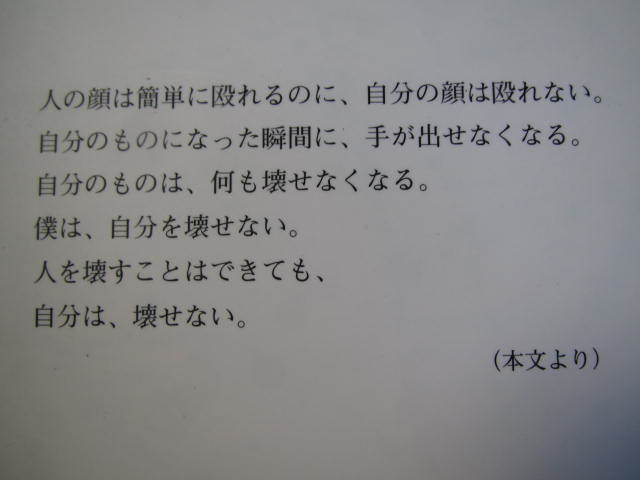 人の顔は簡単に殴れるのに、自分の顔は殴れない。
自分のものになった瞬間に、手が出せなくなる。
自分のものは、何も壊せなくなる。
僕は、自分を壊せない。
人を壊すことはできても、
自分は、壊せない。
（本文より）